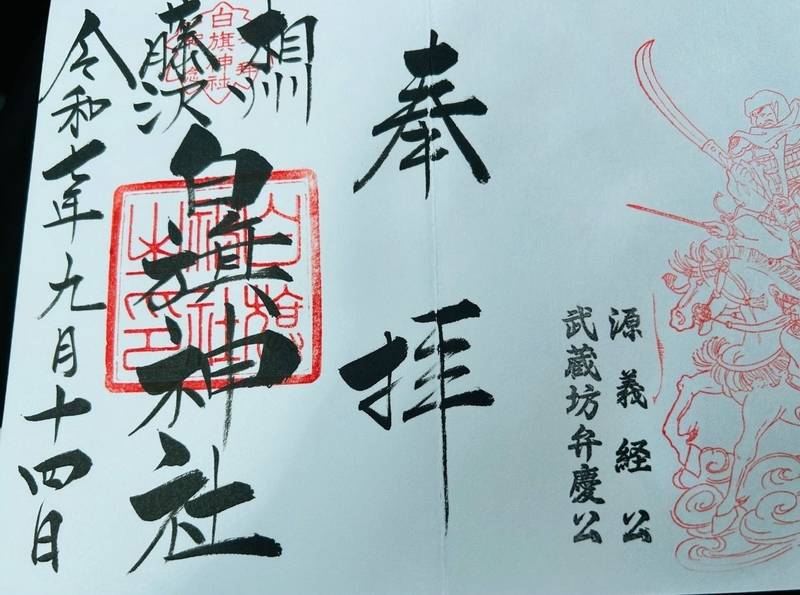 源義経公
武蔵坊弁慶公
奉拝
相州
藤沢
白旗神社
白旗神社
白旗神社之印
令和七年九月十四日